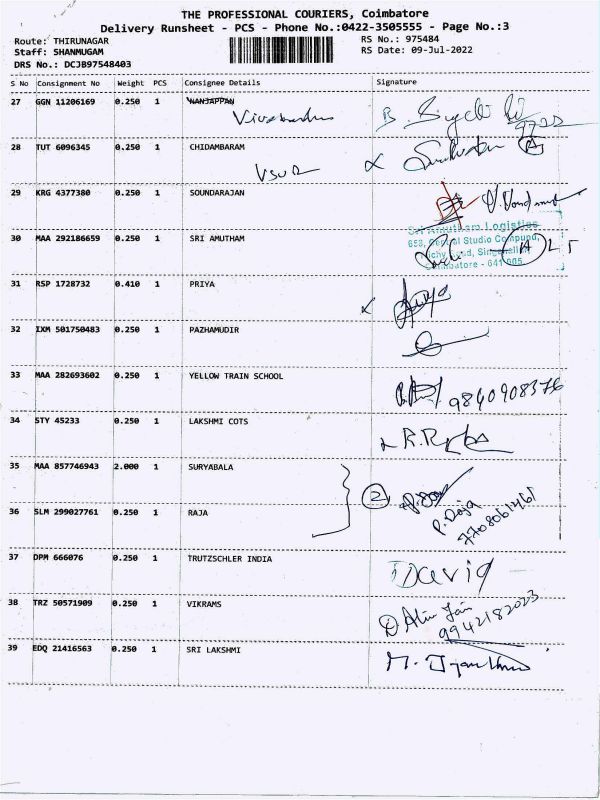 THE PROFESSIONAL COURIERS, Coimbatore
Delivery Runsheet - PCS - Phone No.:0422-3505555 - Page No.:3
Route: THIRUNAGAR RS No.: 975484
Staff: SHANMUGAM RS Date: 09-Jul-2022
DRS No.: DCJB97548403
S No Consignment No Weight PCS Consignee Details Signature
27 GGN 11206169 0.250 1 NANJAPPAN
28 TUT 6096345 0.250 1 CHIDAMBARAM
29 KRG 4377380 0.250 1 SOUNDARAJAN
Sri Amutham Logistics
30 MAA 292186659 0.250 1 SRI AMUTHAM
31 RSP 1728732 0.410 1 PRIYA
32 IXM 501750483 0.250 1 PAZHAMUDIR
33 MAA 282693602 0.250 1 YELLOW TRAIN SCHOOL
9840908376
34 STY 45233 0.250 1 LAKSHMI COTS
35 MAA 857746943 2.000 1 SURYABALA
2
36 SLM 299027761 0.250 1 RAJA
P. Raja
7708061461
37 DPM 666076 0.250 1 TRUTZSCHLER INDIA
David
38 TRZ 50571909 0.250 1 VIKRAMS
9942182023
39 EDQ 21416563 0.250 1 SRI LAKSHMI